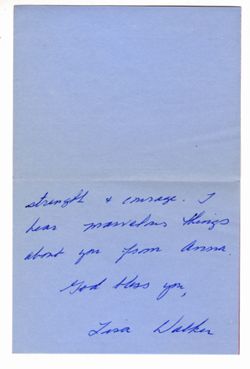 strength & courage. I
hear marvelous things
about you from Anna.
God bless you,
Lisa Walker